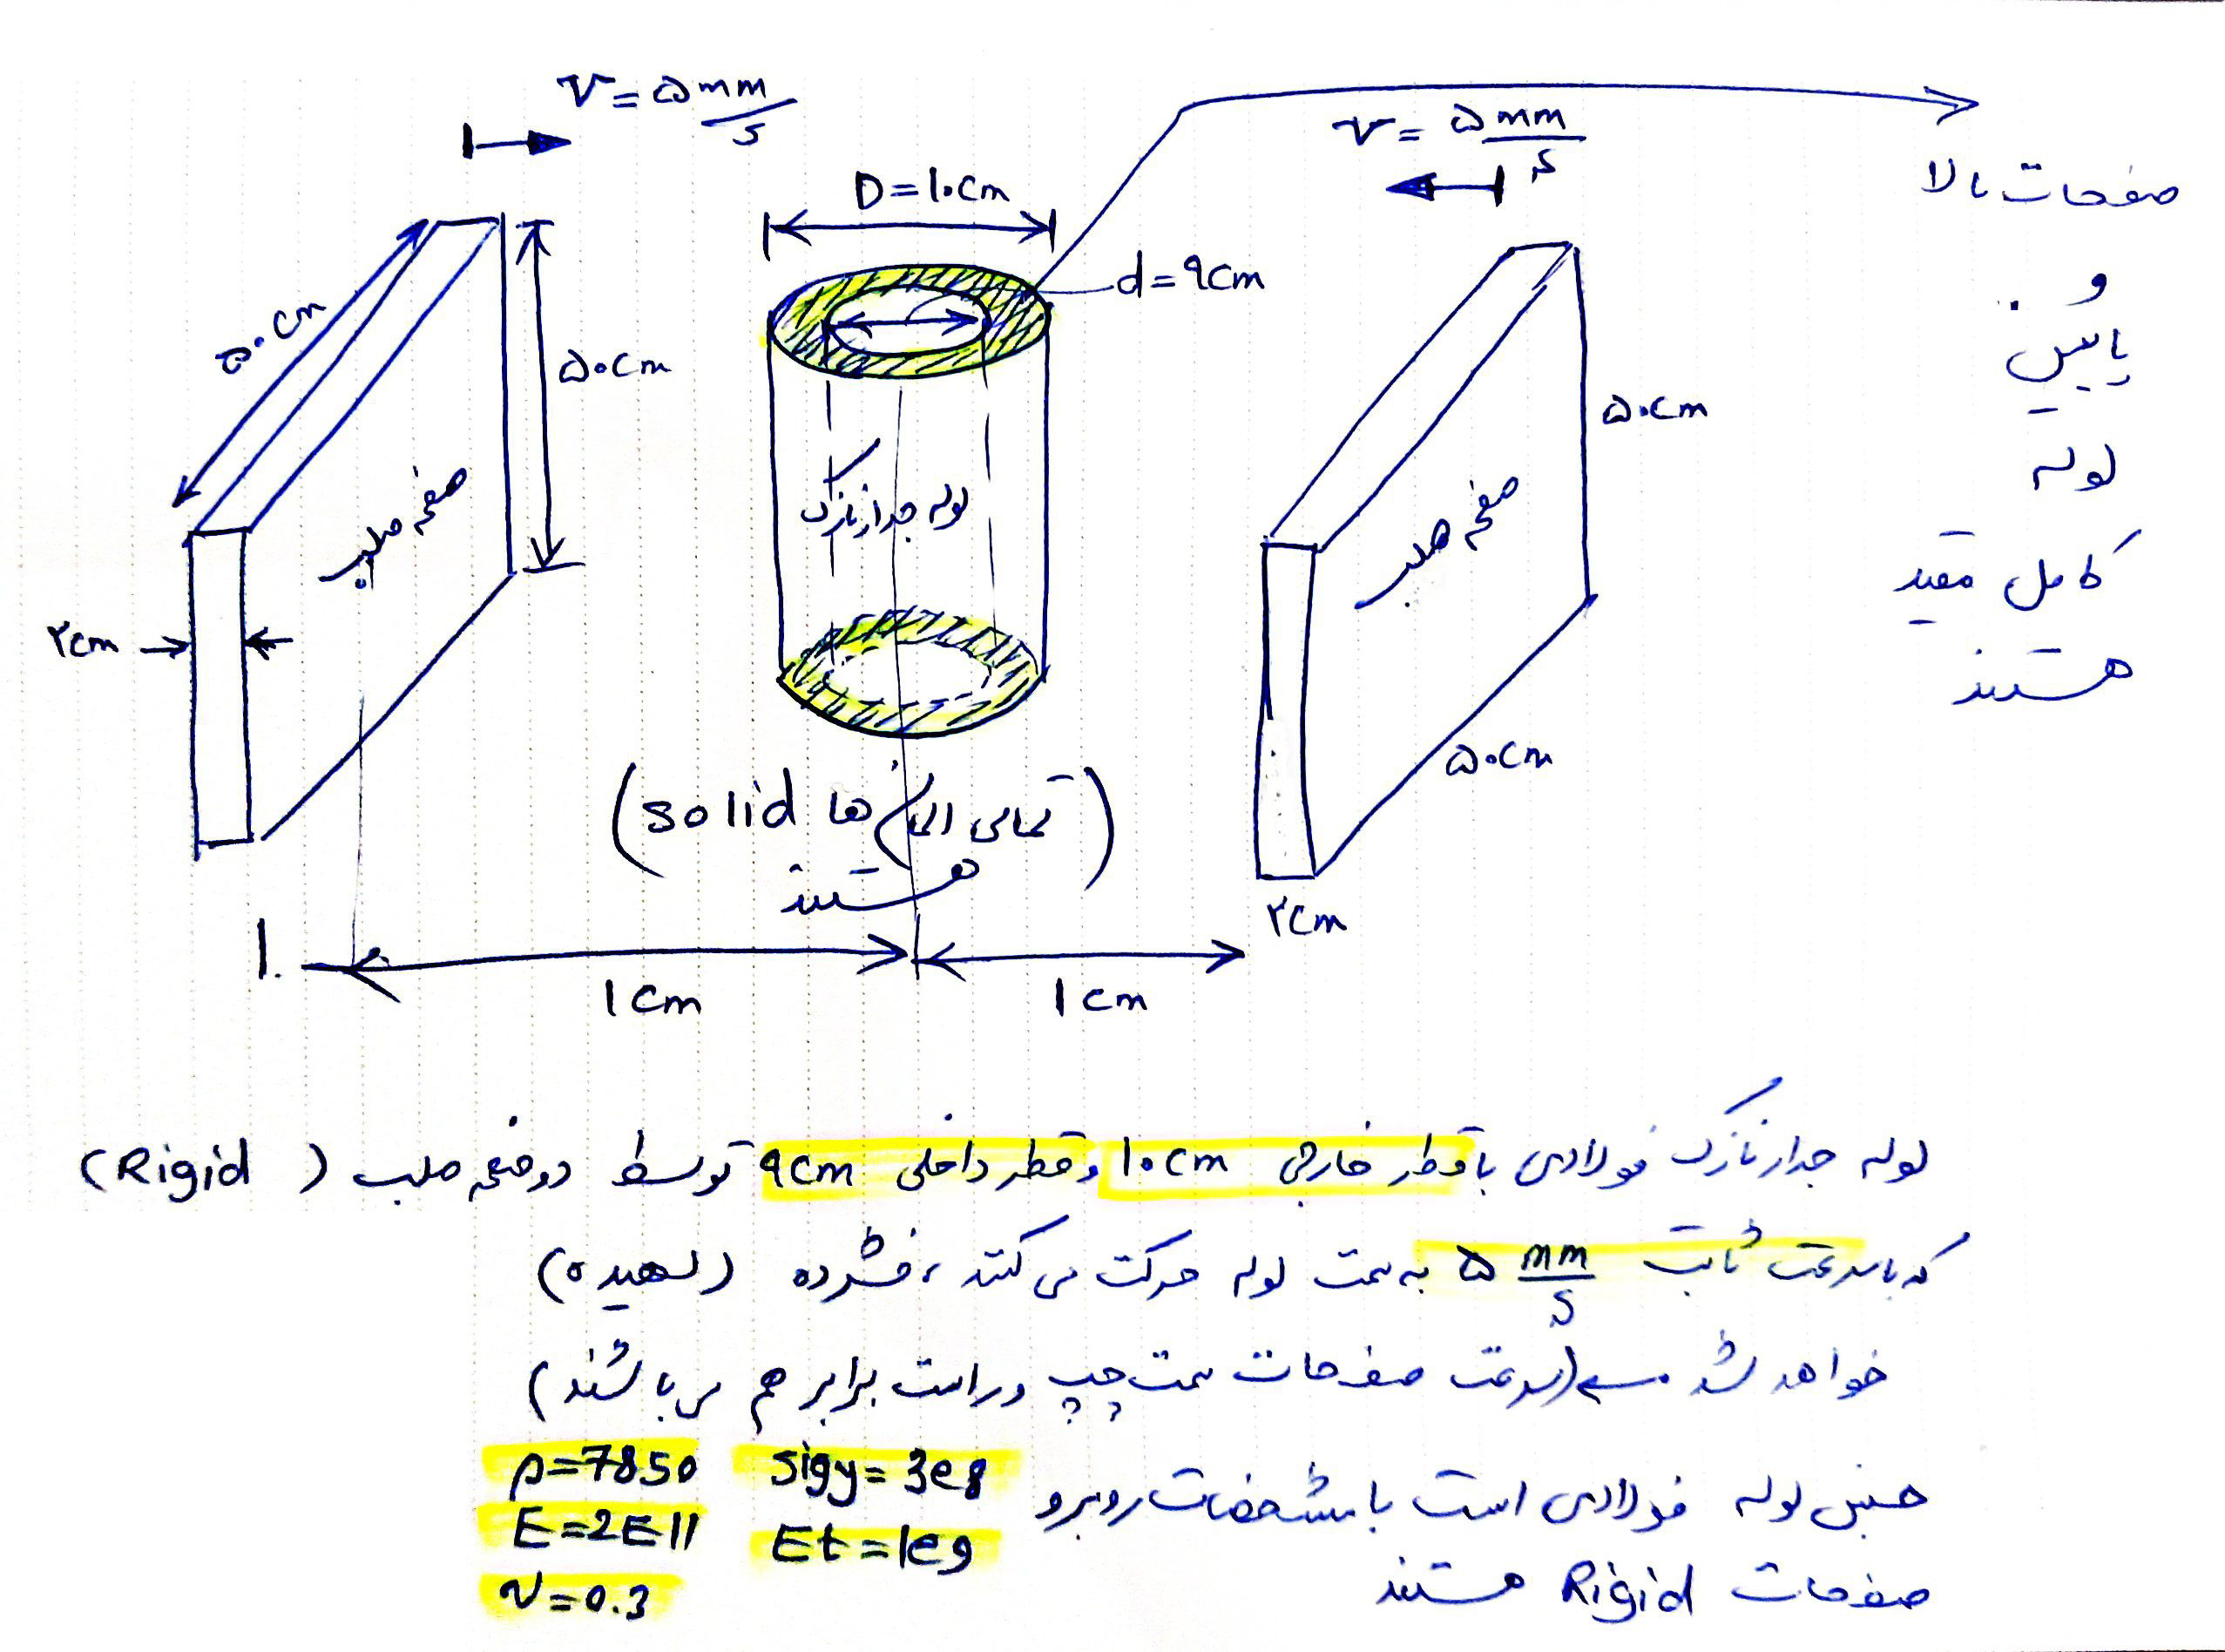 V = ۵ mm/s
V = ۵ mm/s
D = ۱۰ cm
d = ۹ cm
صفحات بالا
و
پایین
لوله
کامل مقید
هستند
۵۰ cm
۵۰ cm
صفحه صلب
۲ cm
لوله جدار نازک
۵۰ cm
صفحه صلب
۵۰ cm
۲ cm
(تمامی المان ها solid
هستند)
۱ cm
۱ cm
لوله جدار نازک فولادی با قطر خارجی ۱۰ cm و قطر داخلی ۹ cm توسط دو صفحه صلب (Rigid)
که با سرعت ثابت ۵ mm/s به سمت لوله حرکت می کنند، فشرده (لهیده)
خواهد شد. (سرعت صفحات سمت چپ و راست برابر هم می باشند)
جنس لوله فولادی است با مشخصات روبرو
صفحات Rigid هستند
ρ=7850 sigy=3e8
E=2E11 Et=1e9
ν=0.3